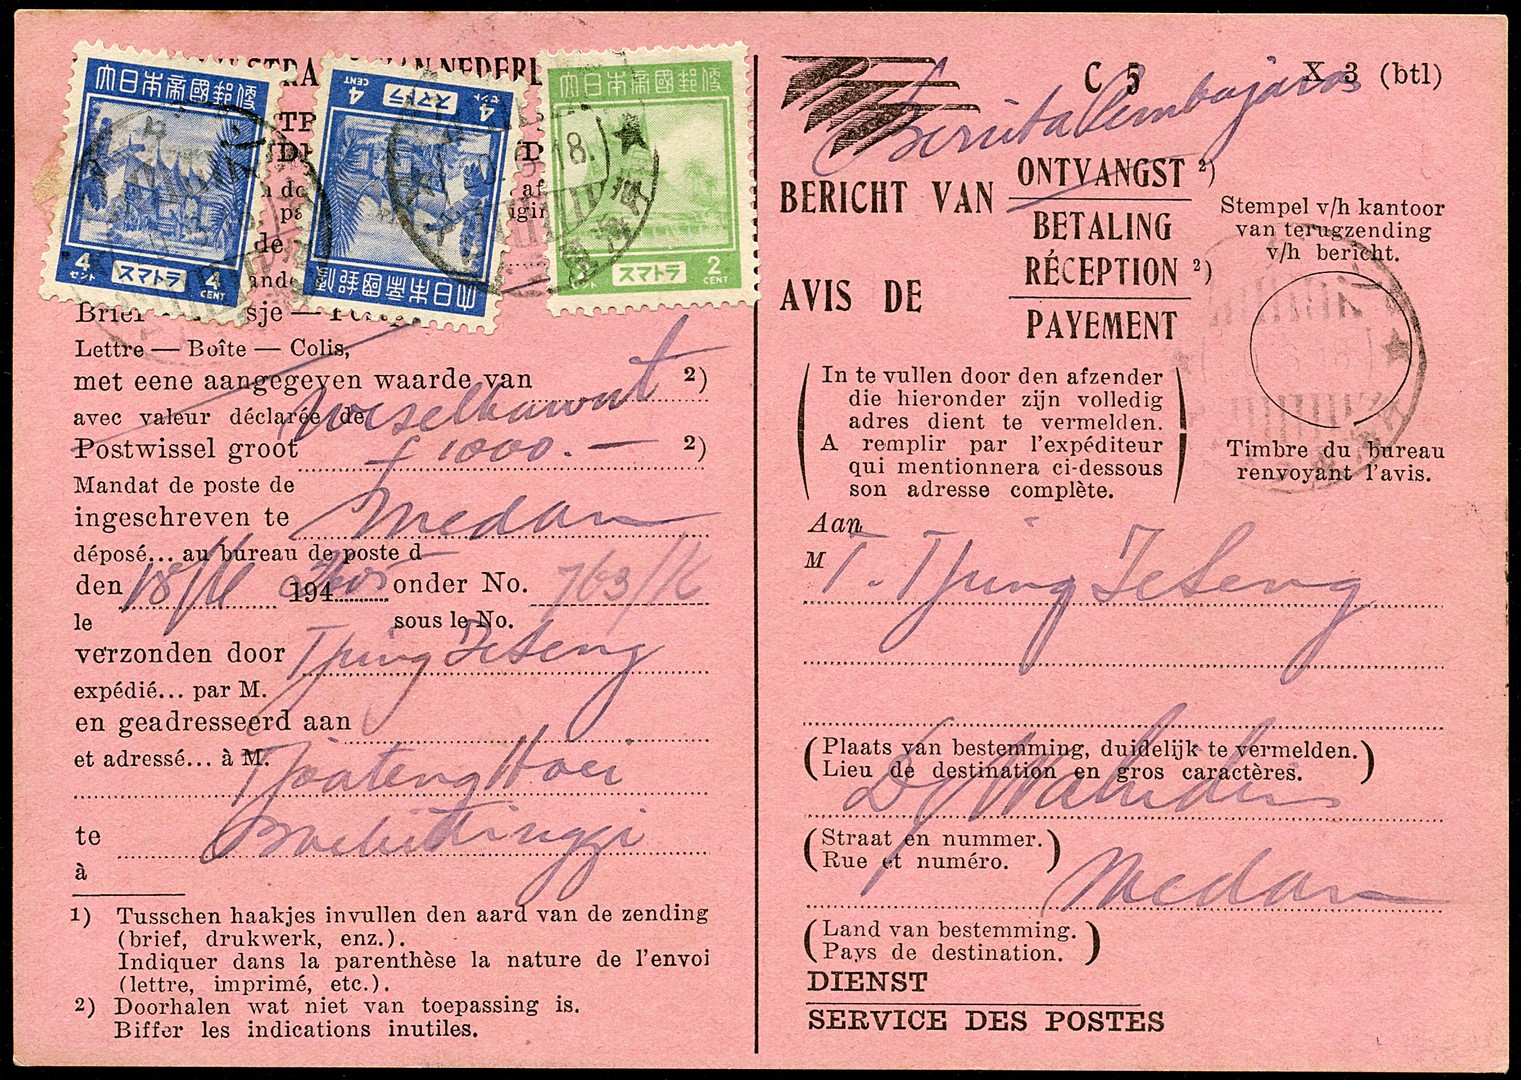 大日本帝國郵便
4
セント
スマトラ
4
CENT
大日本帝國郵便
4
セント
スマトラ
4
大日本帝國郵便
スマトラ
2
CENT
18.
STRA VAN NEDERL
Brief sje — Post
Lettre — Boîte — Colis,
met eene aangegeven waarde van 2)
avec valeur déclarée de Wesselkawat
Postwissel groot f 1000.— 2)
Mandat de poste de
ingeschreven te Medan
déposé... au bureau de poste d
den 18/6 194 2605 onder No. 763/K
le sous le No.
verzonden door Tjing Je Seng
expédié... par M.
en geadresseerd aan
et adressé... à M.
Tjoa Teng Hoei
te Boekittinggi
à
1) Tusschen haakjes invullen den aard van de zending
(brief, drukwerk, enz.).
Indiquer dans la parenthèse la nature de l'envoi
(lettre, imprimé, etc.).
2) Doorhalen wat niet van toepassing is.
Biffer les indications inutiles.
C 5 X 3 (btl)
Berita Pembajaran
BERICHT VAN ONTVANGST 2)
BETALING
AVIS DE RÉCEPTION 2)
PAYEMENT
Stempel v/h kantoor
van terugzending
v/h bericht.
Timbre du bureau
renvoyant l'avis.
(In te vullen door den afzender
die hieronder zijn volledig
adres dient te vermelden.
A remplir par l'expéditeur
qui mentionnera ci-dessous
son adresse complète.)
Aan
M T. Tjing Je Seng
(Plaats van bestemming, duidelijk te vermelden.
Lieu de destination en gros caractères.)
Dj Wahidin
(Straat en nummer.
Rue et numéro.)
Medan
(Land van bestemming.
Pays de destination.)
DIENST
SERVICE DES POSTES